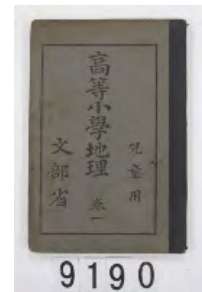 兒童用
高等小學地理 卷一
文部省
9190